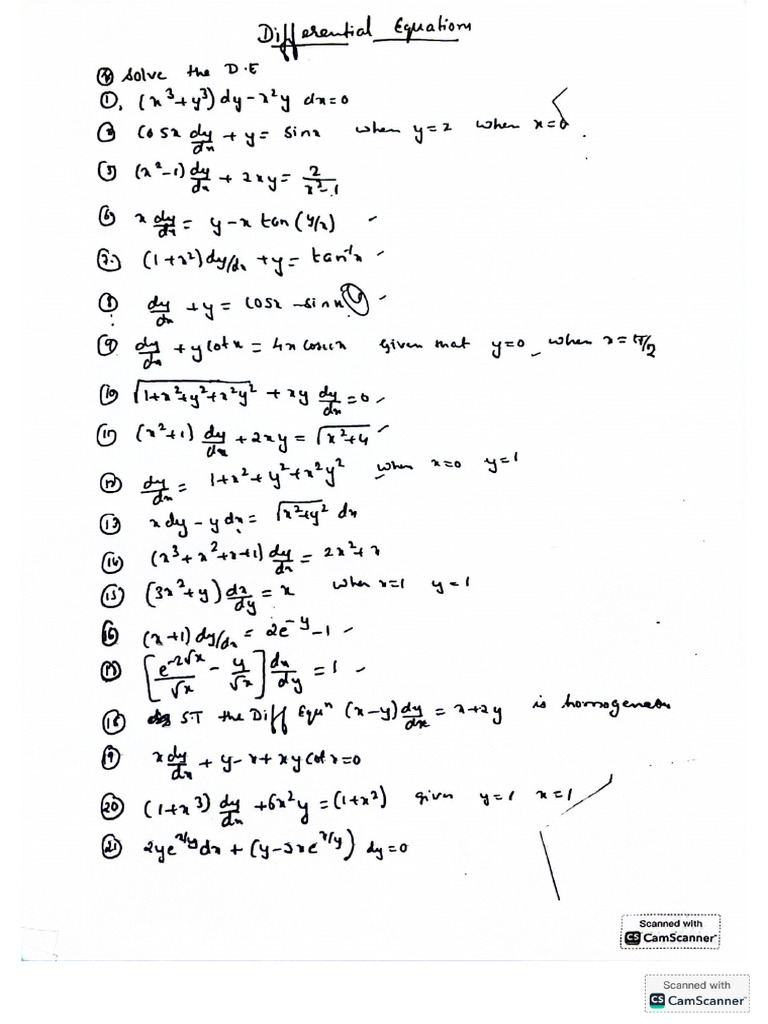 Differential Equations
Solve the D.E
①, (x³+y³)dy-x²y dx=0
② cosx dy/dx + y = sinx when y=2 when x=0.
(x²-1)dy/dx + 2xy = 2/(x²-1)
⑥ x dy/dx = y-x tan(y/x)
⑦ (1+x²)dy/dx +y = tan⁻¹x
⑧ dy/dx +y = cosx -sinx
⑨ dy/dx + ycotx = 4x cosecx given that y=0, when x=π/2
⑩ √(1+x²+y²+x²y²) + xy dy/dx =0
⑪ (x²+1) dy/dx + 2xy = √(x²+4)
⑫ dy/dx = 1+x²+y²+x²y² when x=0 y=1
⑬ xdy-ydx = √(x²+y²) dx
⑭ (x³+x²+x+1)dy/dx = 2x²+x
⑮ (3x²+y)dx/dy = x when x=1 y=1
⑯ (x+1)dy/dx = 2e⁻ʸ-1
[e^(-2√x)/√x - y/√x] dx/dy =1
⑱ S.T the Diff Equⁿ (x-y)dy/dx = x+2y is homogeneous
⑲ x dy/dx + y-x+xycotx=0
⑳ (1+x³) dy/dx +6x²y = (1+x²) given y=1 x=1
㉑ 2ye^(x/y)dx + (y-2xe^(x/y)) dy=0
Scanned with
CS CamScanner
Scanned with
CS CamScanner